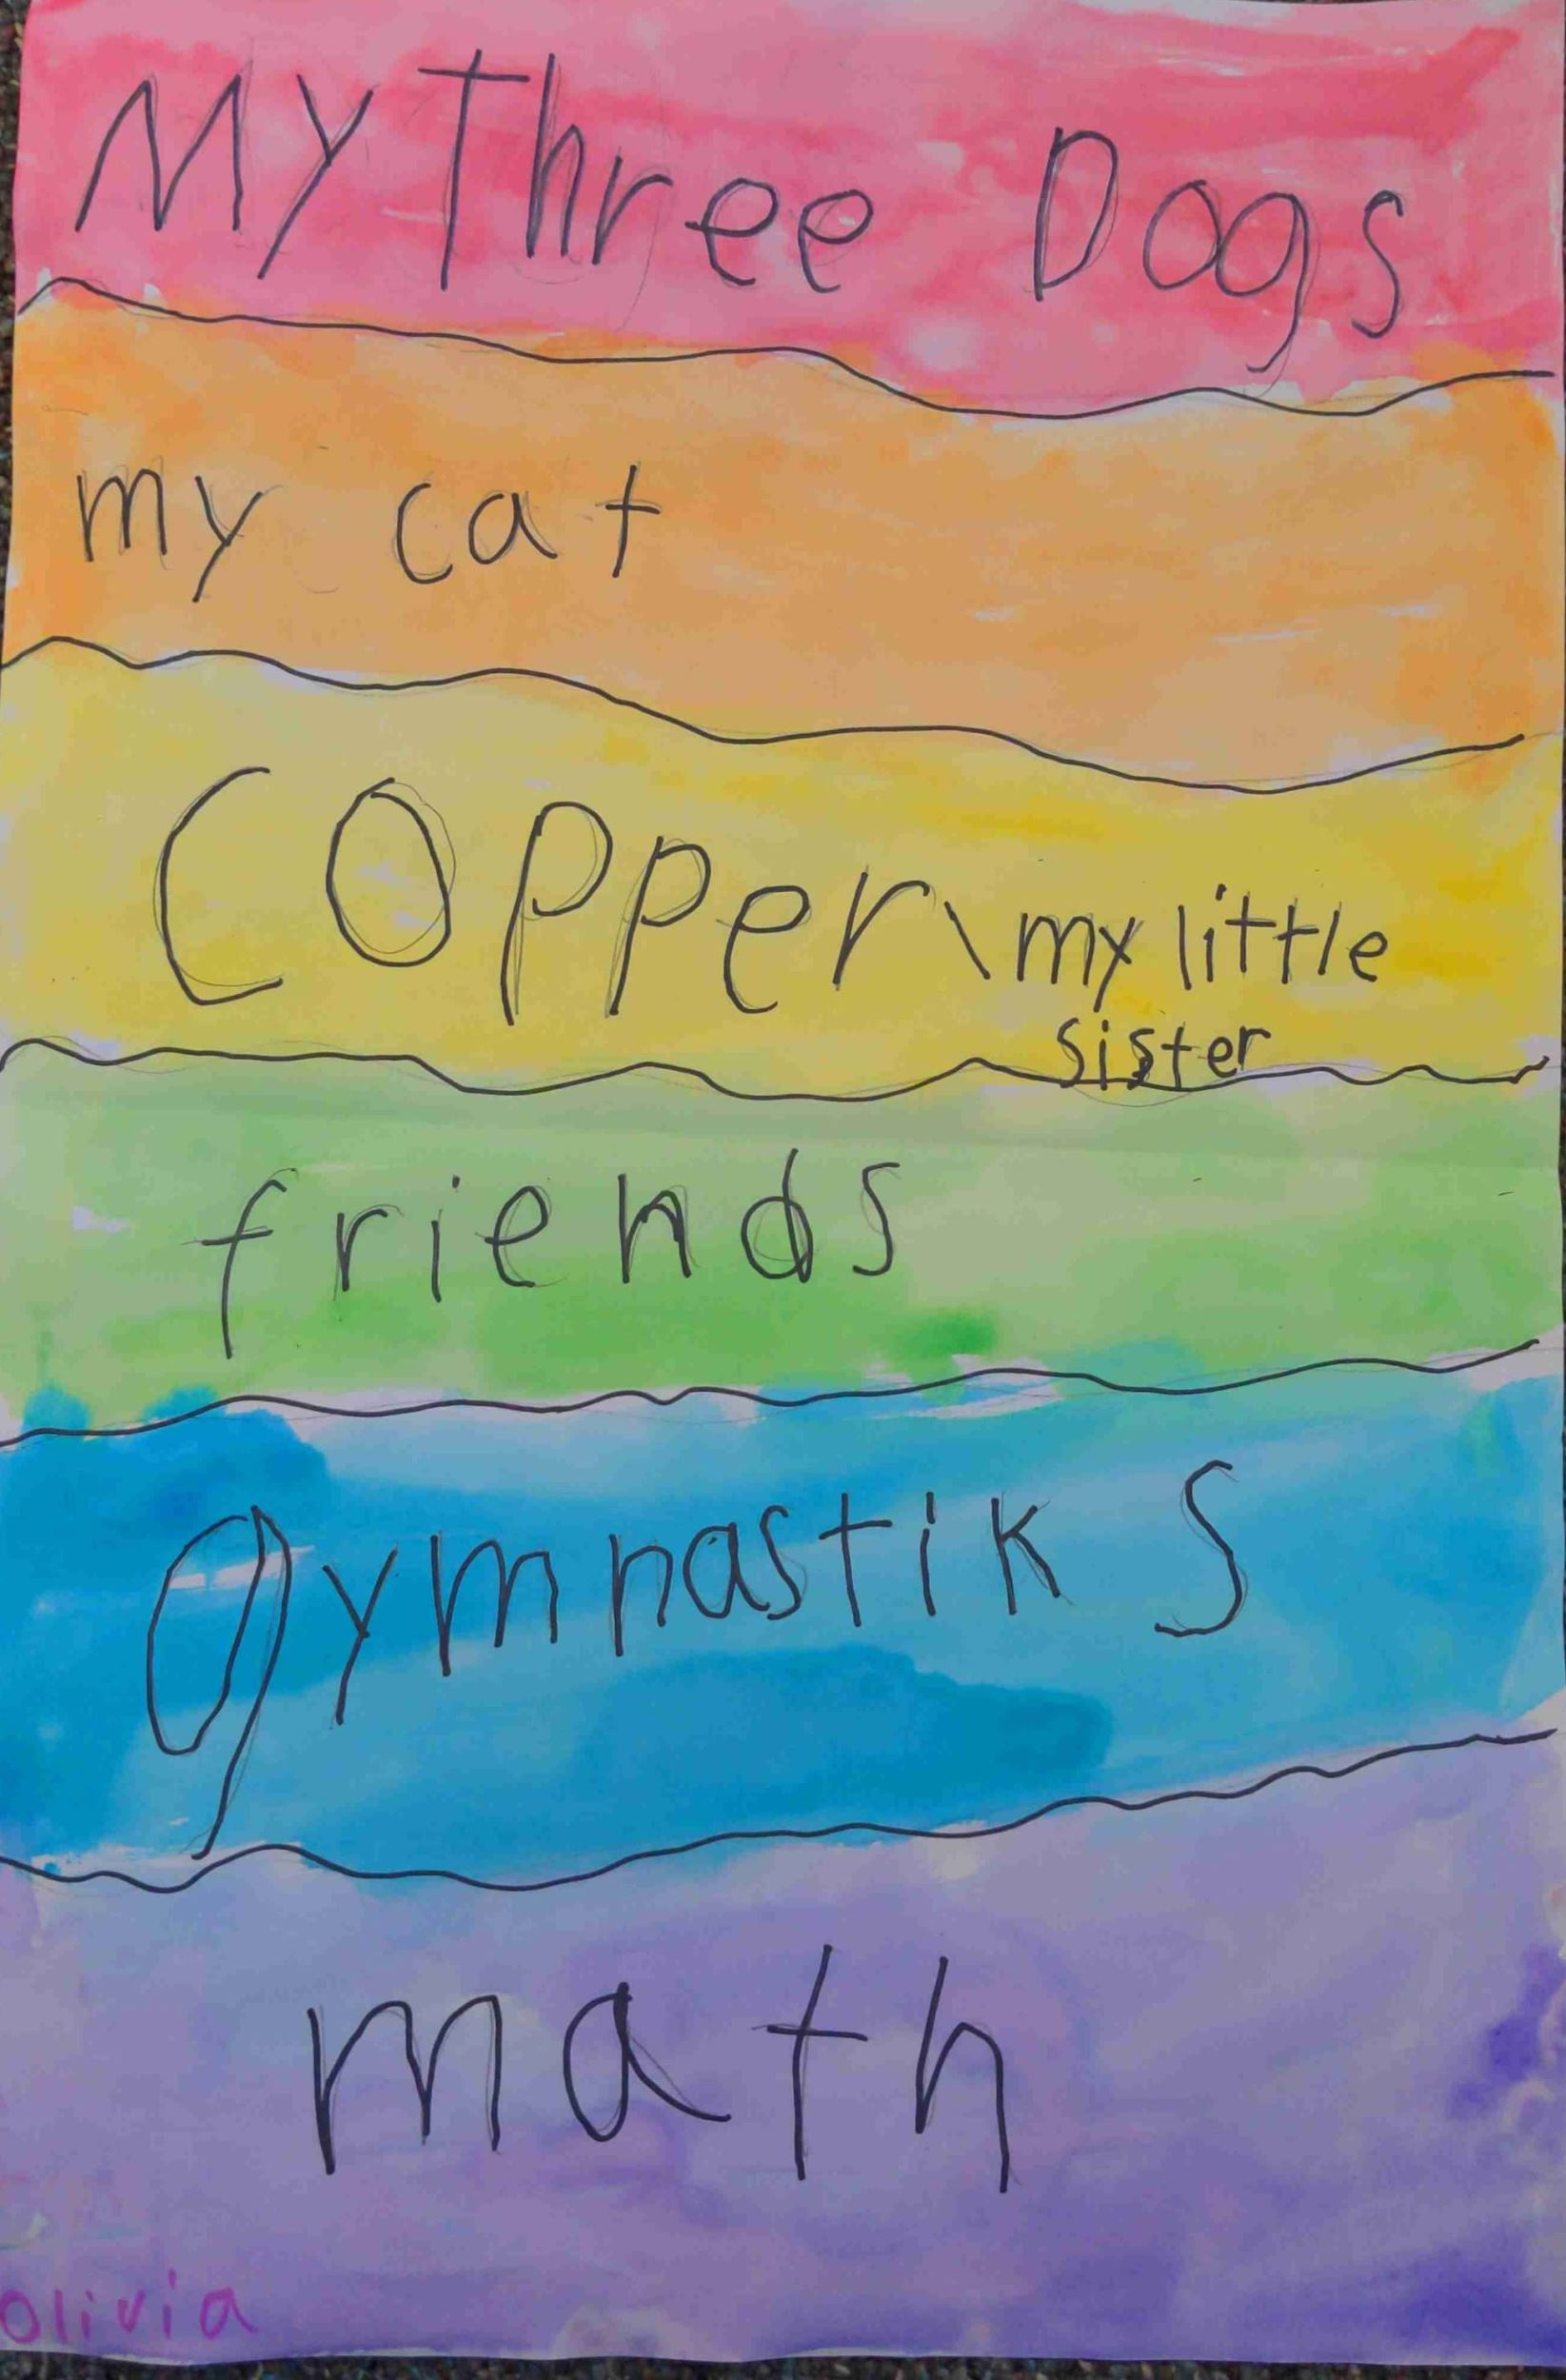 My Three Dogs
my cat
Copper \ my little
sister
friends
gymnastiks
math
olivia